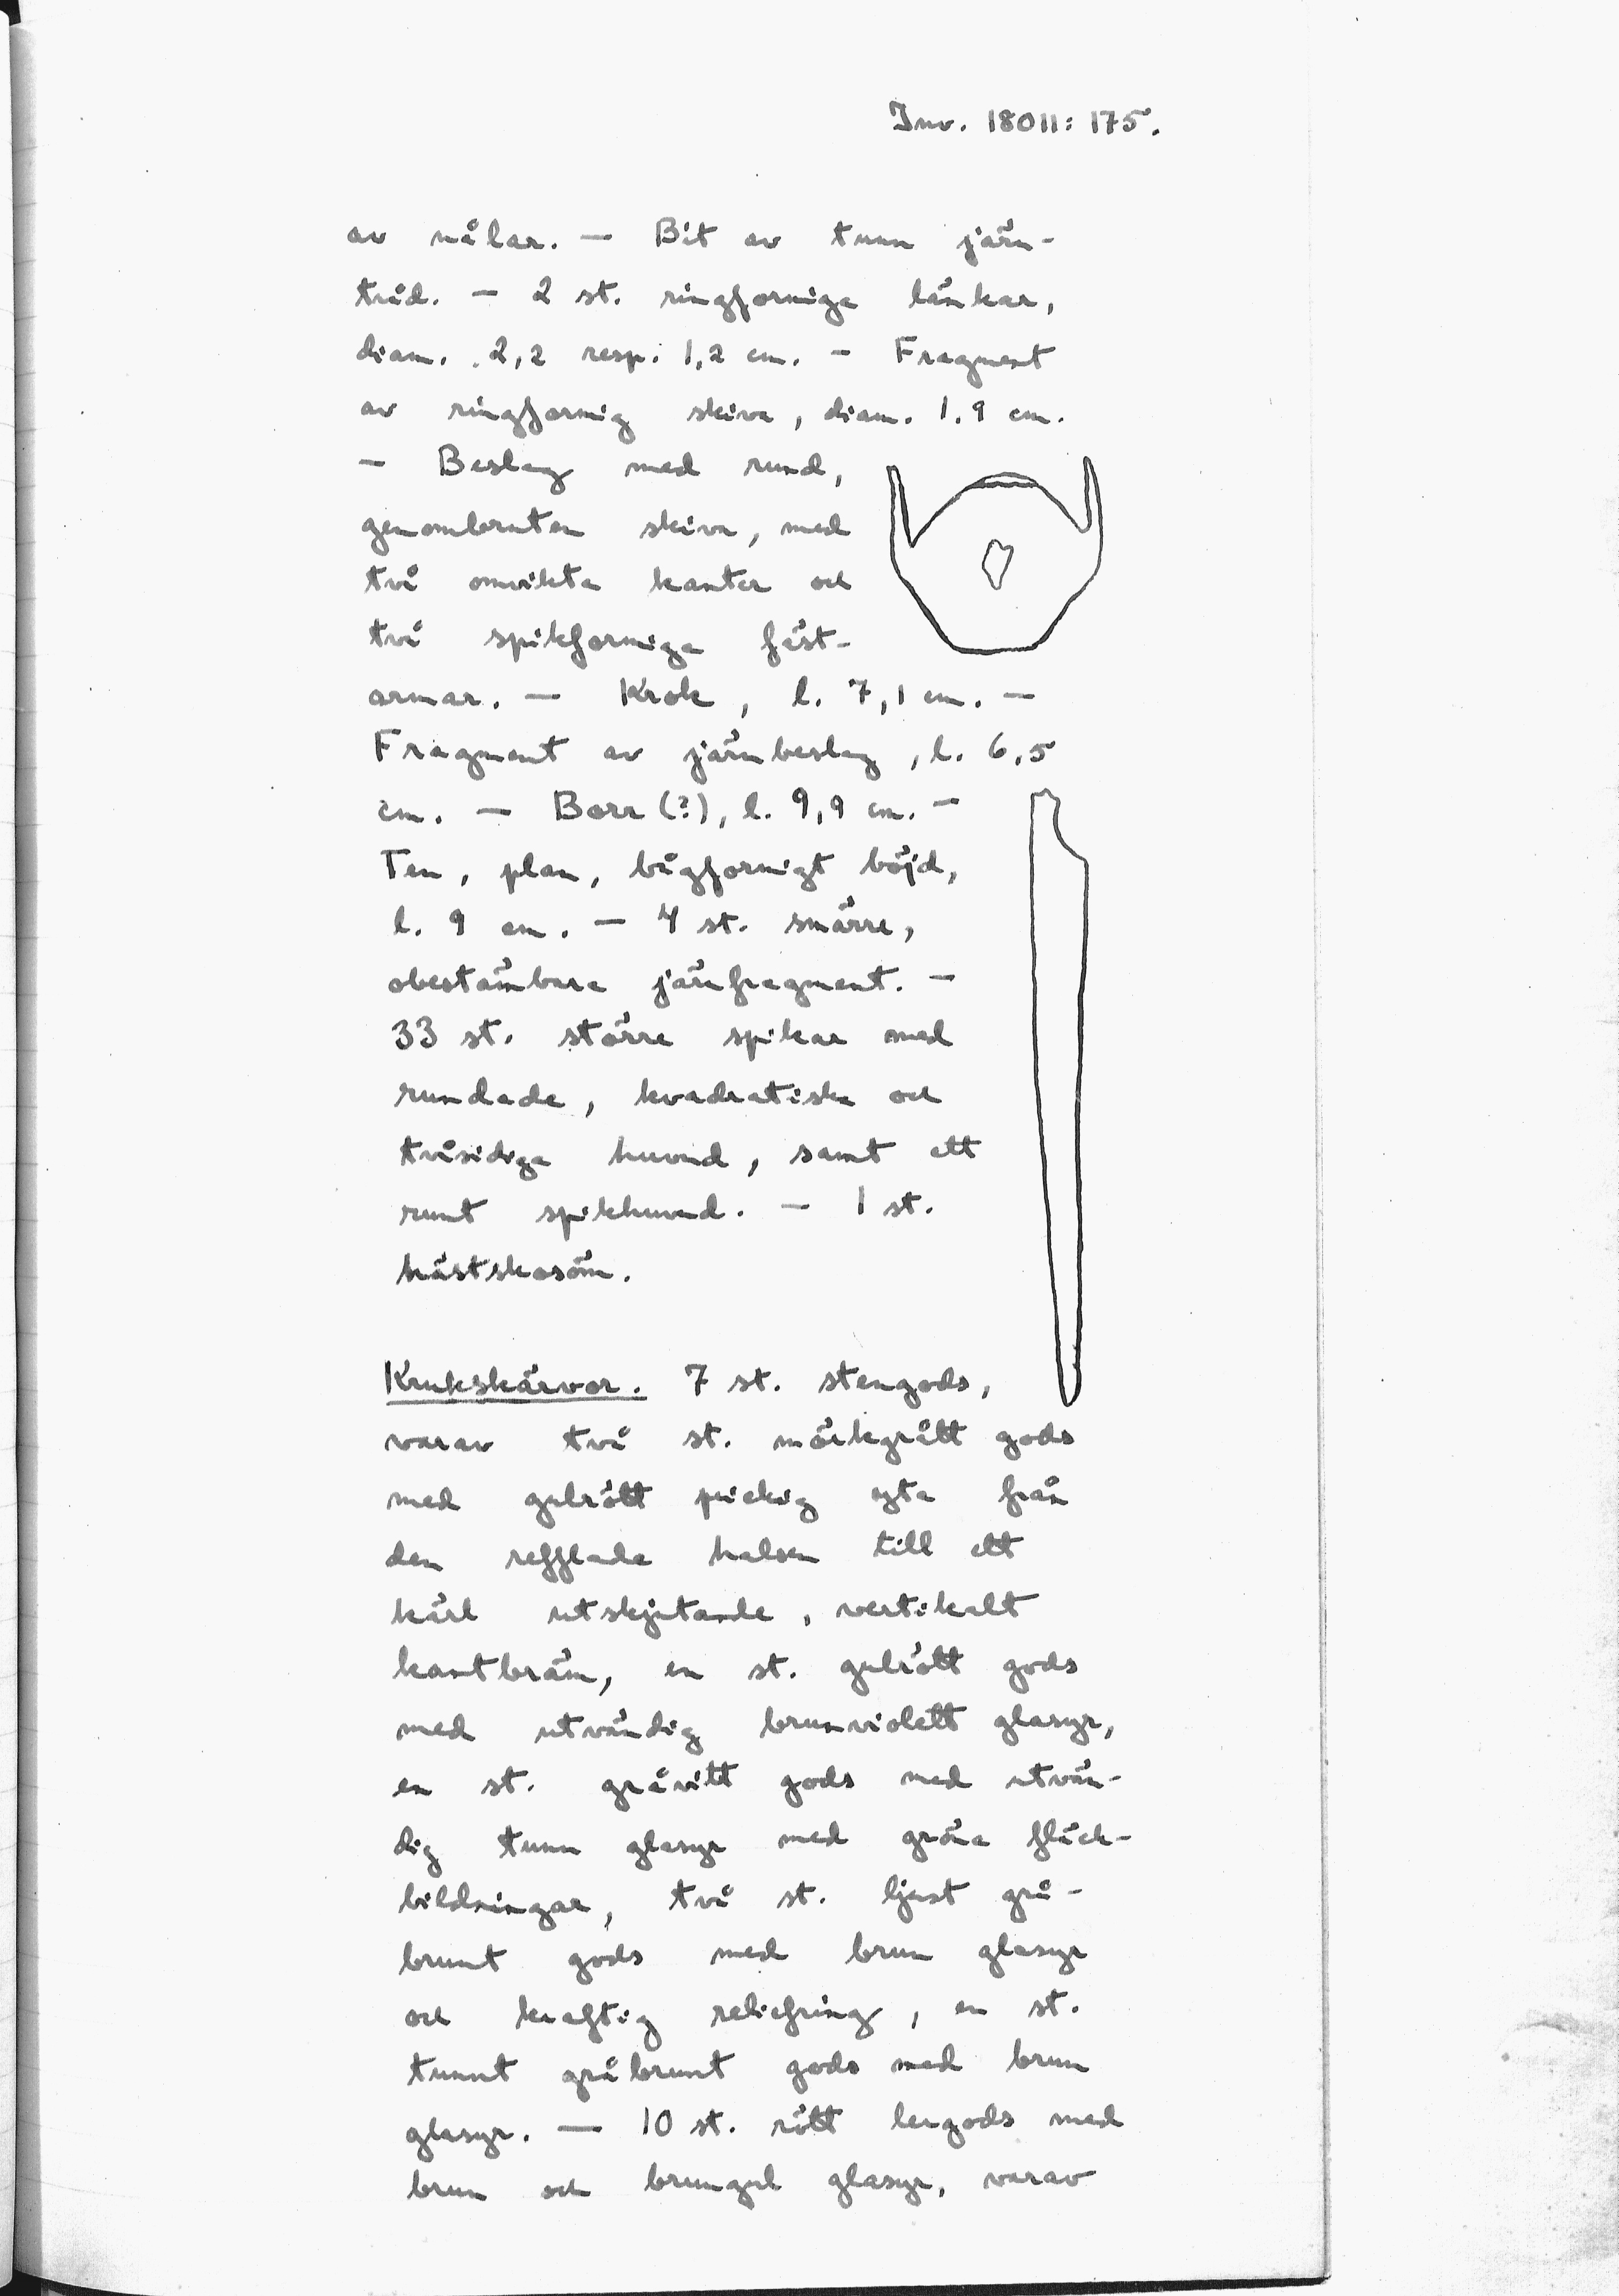 Inv. 18011: 175.
av nålar. — Bit av tunn järn-
tråd. — 2 st. ringformiga länkar,
diam. 2,2 resp. 1,2 cm. — Fragment
av ringformig skiva, diam. 1.9 cm.
— Beslag med rund,
genombruten skiva, med
två omvikta kanter och
två spikformiga fäst-
armar. — Krok, l. 7,1 cm. —
Fragment av järnbeslag, l. 6,5
cm. — Borr (?), l. 9,9 cm. —
Ten, plan, bågformigt böjd,
l. 9 cm. — 4 st. smärre,
obestämbara järnfragment. —
33 st. större spikar med
rundade, kvadratiska och
tvåsidiga huvud, samt ett
runt spikhuvud. — 1 st.
hästskosöm.
Krukskärvor. 7 st. stengods,
varav två st. mörkgrått gods
med gulrött prickig yta från
den refflade halsen till ett
kärl utskjutande, vertikalt
kantbräm, en st. gulrött gods
med utvändig brunviolett glasyr,
en st. gråvitt gods med utvän-
dig tunn glasyr med gröna fläck-
bildningar, två st. ljust grå-
brunt gods med brun glasyr
och kraftig reliefring, en st.
tunnt gråbrunt gods med brun
glasyr. — 10 st. rött lergods med
brun och brungul glasyr, varav